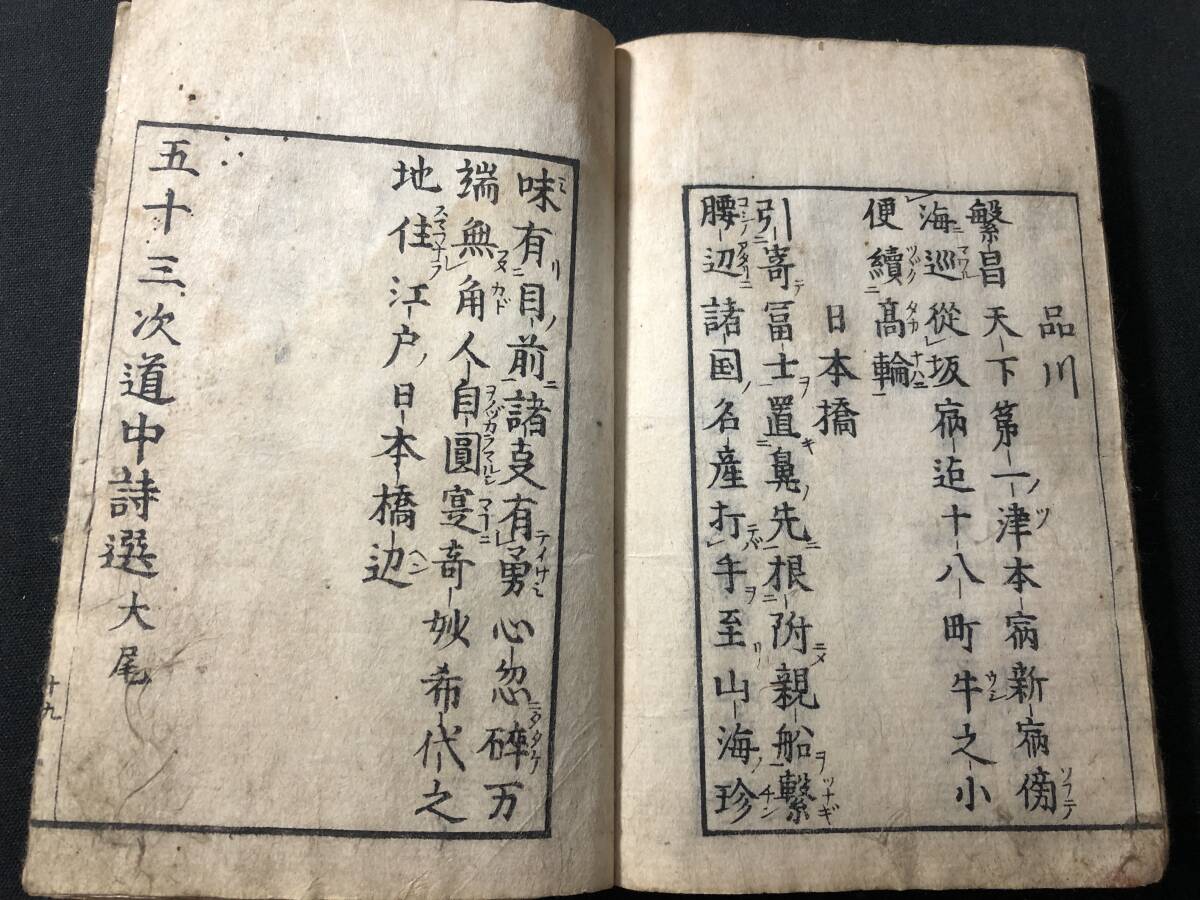 品川
繁昌天下第一津本宿新宿傍
海巡従坂宿迠十八町牛之小
便續髙輪
日本橋
引寄冨士置鼻先根附親船繫
腰辺諸国名産打手至山海珍
味有目前諸叓有勇心忽碎万
端無角人自圓寔奇妙希代之
地住江戸日本橋辺
五十三次道中詩選大尾
十九